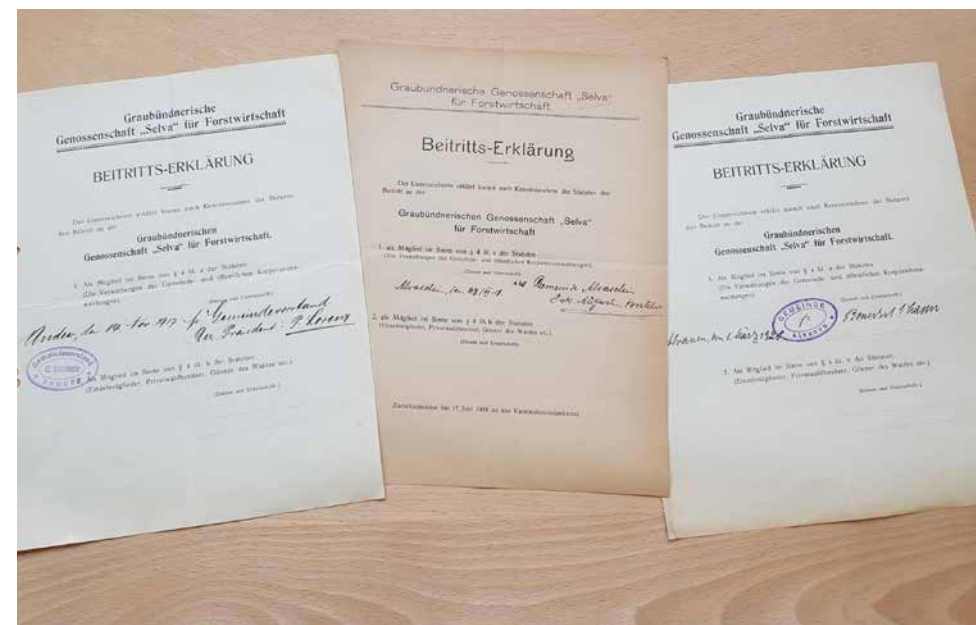 Graubündnerische
Genossenschaft „Selva“ für Forstwirtschaft
BEITRITTS-ERKLÄRUNG
Der Unterzeichnete erklärt hiemit nach Kenntnisnahme der Statuten
den Beitritt zu der
Graubündnerischen
Genossenschaft „Selva“ für Forstwirtschaft.
1. Als Mitglied im Sinne von § 4 lit. a der Statuten
(Die Verwaltungen der Gemeinde- und öffentlichen Korporations-
waldungen).
(Datum und Unterschrift.)
Andeer, den 14. Nov. 1917 Gemeindevorstand
Der Präsident:
Gemeindevorstand
ANDEER
2. Als Mitglied im Sinne von § 4 lit. b der Statuten
(Einzelmitglieder, Privatwaldbesitzer, Gönner des Waldes etc.)
(Datum und Unterschrift.)
Graubündnerische Genossenschaft „Selva“
für Forstwirtschaft
Beitritts-Erklärung
Der Unterzeichnete erklärt hiemit nach Kenntnisnahme der Statuten den
Beitritt zu der
Graubündnerischen Genossenschaft „Selva“
für Forstwirtschaft
1. als Mitglied im Sinne von § 4 lit. a der Statuten
(Die Verwaltungen der Gemeinde- und öffentlichen Korporationswaldungen).
(Datum und Unterschrift)
Gemeinde
2. als Mitglied im Sinne von § 4 lit. b der Statuten
(Einzelmitglieder, Privatwaldbesitzer, Gönner des Waldes etc.)
(Datum und Unterschrift)
Graubündnerische
Genossenschaft „Selva“ für Forstwirtschaft
BEITRITTS-ERKLÄRUNG
Der Unterzeichnete erklärt hiemit nach Kenntnisnahme der Statuten
den Beitritt zu der
Graubündnerischen
Genossenschaft „Selva“ für Forstwirtschaft.
1. Als Mitglied im Sinne von § 4 lit. a der Statuten
(Die Verwaltungen der Gemeinde- und öffentlichen Korporations-
waldungen).
(Datum und Unterschrift.)
GEMEINDE
2. Als Mitglied im Sinne von § 4 lit. b der Statuten
(Einzelmitglieder, Privatwaldbesitzer, Gönner des Waldes etc.)
(Datum und Unterschrift.)